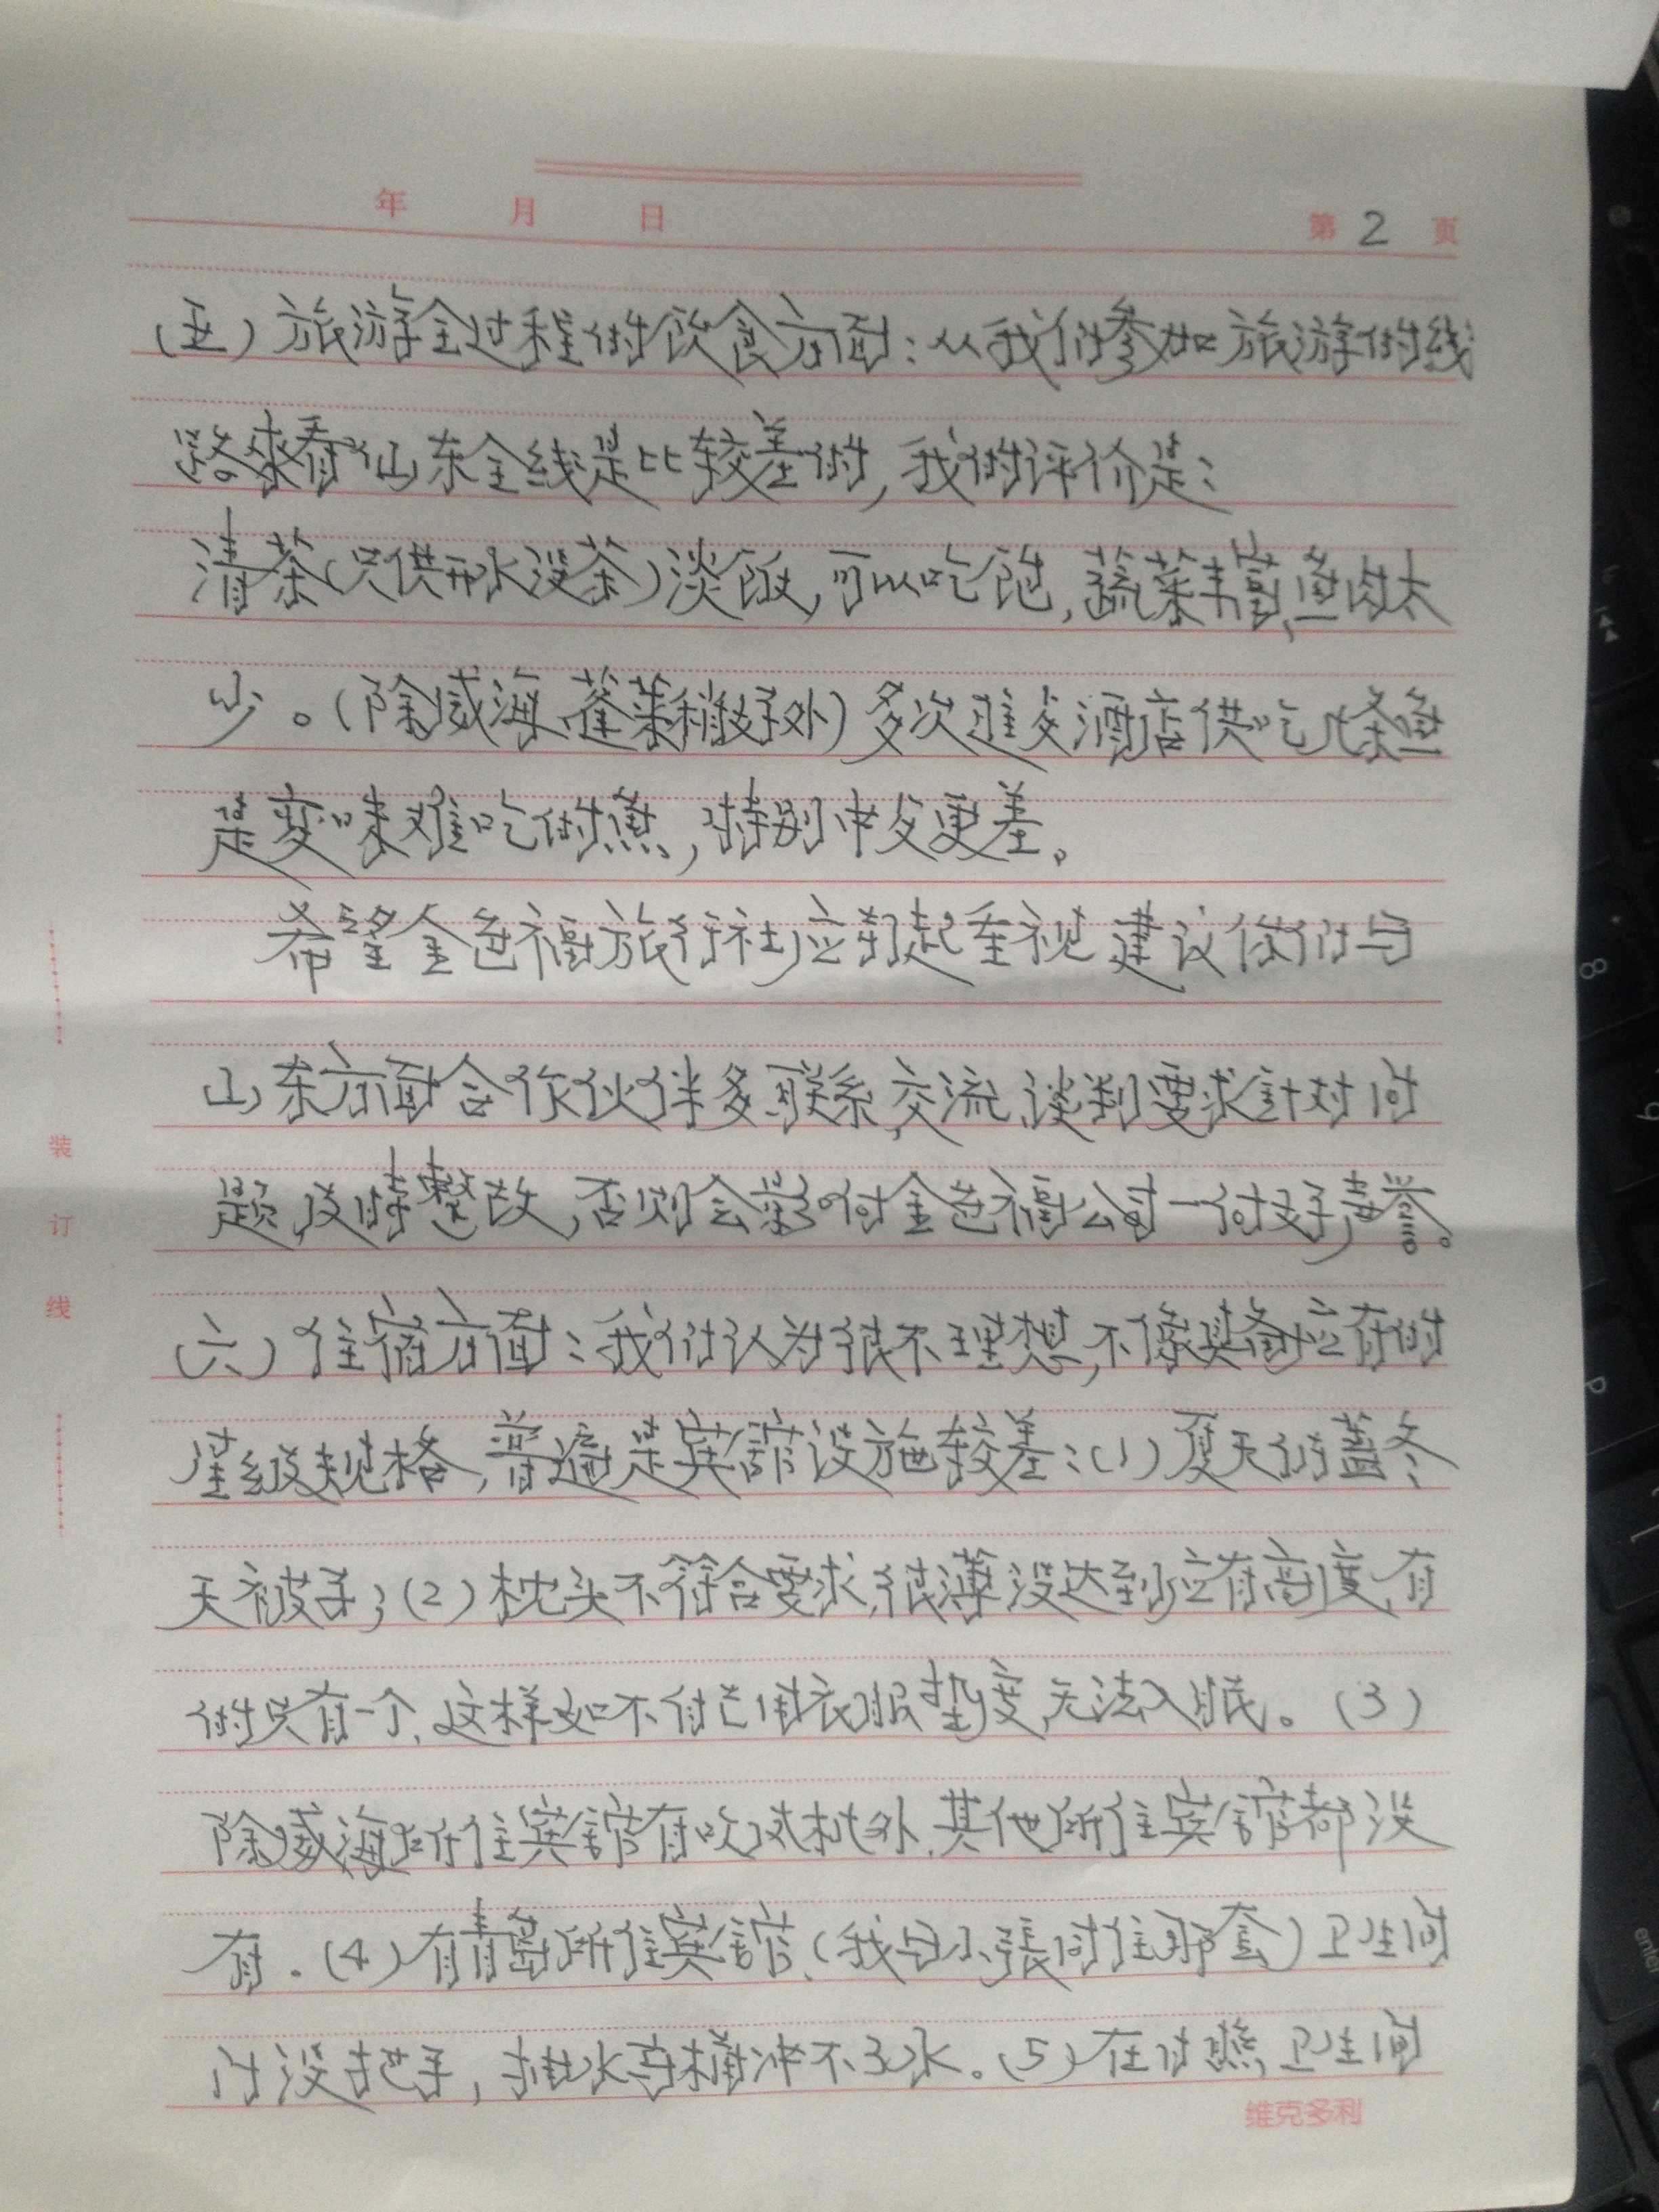 年 月 日 第 2 页
(五)旅游全过程的饮食方面:从我们参加旅游的线
路来看山东全线是比较差的,我的评价是:
清茶(只供开水没茶)淡饭,可以吃饱,蔬菜丰富,鱼肉太
少。(除威海、蓬莱稍好外)多次进多酒店供吃几条鱼
是变味难吃的鱼,特别中多更差。
希望金色福旅行社应引起重视建议你们与
山东方面合作伙伴多联系,交流,谈判要求针对问
题,及时整改,否则会影响金色福公司一向好声誉。
(六)住宿方面:我们认为很不理想,不像具备应有的
星级规格,普遍是宾馆设施较差:(1)夏天仍盖冬
天被子;(2)枕头不符合要求,很薄没达到应有高度,有
的只有一个,这样如不自己用衣服垫度,无法入眠。(3)
除威海所住宾馆有吹风机外,其他所住宾馆都没
有。(4)有青岛所住宾馆,(我与小張同住那套)卫生间
门没把手,抽水马桶冲不了水。(5)在 卫生间
装
订
线
维克多利